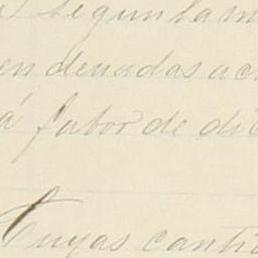 segun la m
en deudas ac
á fabor de dic
Cuyas cantid